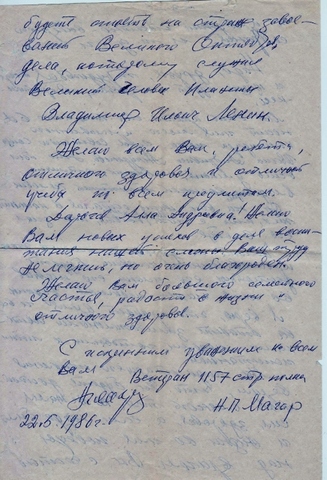 будет стоять на страже завое-
ваний Великого Октября,
дела, которому служил
Великий
Владимир Ильич Ленин.
Желаю всем Вам, ребята,
отличного здоровья и отличной
учебы по всем предметам.
Дорогая Алла Андреевна! Желаю
Вам новых успехов в деле воспи-
тания нашей смены. Ваш труд
нелегкий, но очень благороден.
Желаю Вам большого солнечного
счастья, радости в жизни и
отличного здоровья.
С искренним уважением ко всем
Вам
Ветеран 1157 стр. полка
Н.П. Магар
22.5.1986 г.